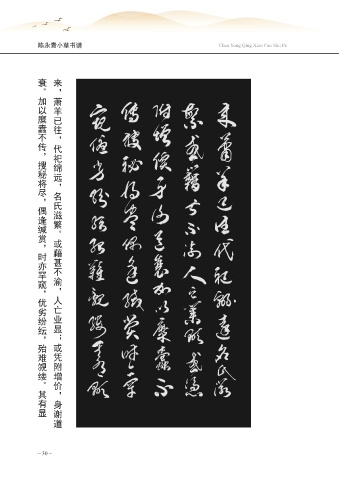 陈永青小草书谱
Chen Yong Qing Xiao Cao Shu Pu
来萧羊已往代祀绵远名氏滋
繁或藉甚不渝人亡业显或凭
附增价身谢道衰加以糜蠹不
传搜秘将尽偶逢缄赏时亦罕
窥优劣纷纭殆难覼缕其有显
来，萧羊已往，代祀绵远，名氏滋繁。或藉甚不渝，人亡业显；或凭附增价，身谢道
衰。加以糜蠹不传，搜秘将尽，偶逢缄赏，时亦罕窥，优劣纷纭，殆难覼缕。其有显
– 30 –